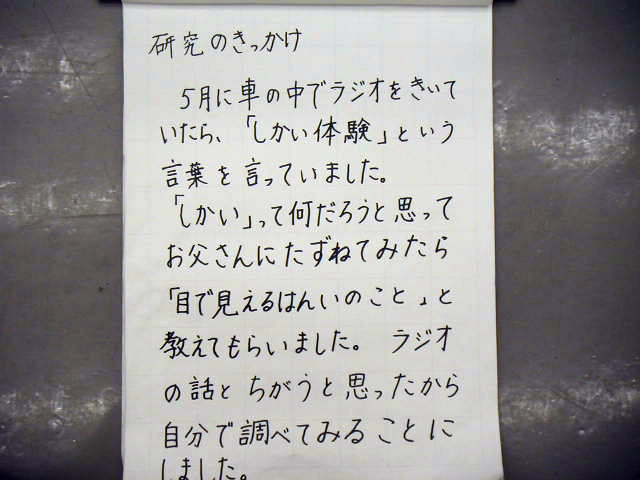 研究のきっかけ
5月に車の中でラジオをきいて
いたら、「しかい体験」という
言葉を言っていました。
「しかい」って何だろうと思って
お父さんにたずねてみたら
「目で見えるはんいのこと」と
教えてもらいました。ラジオ
の話とちがうと思ったから
自分で調べてみることに
しました。